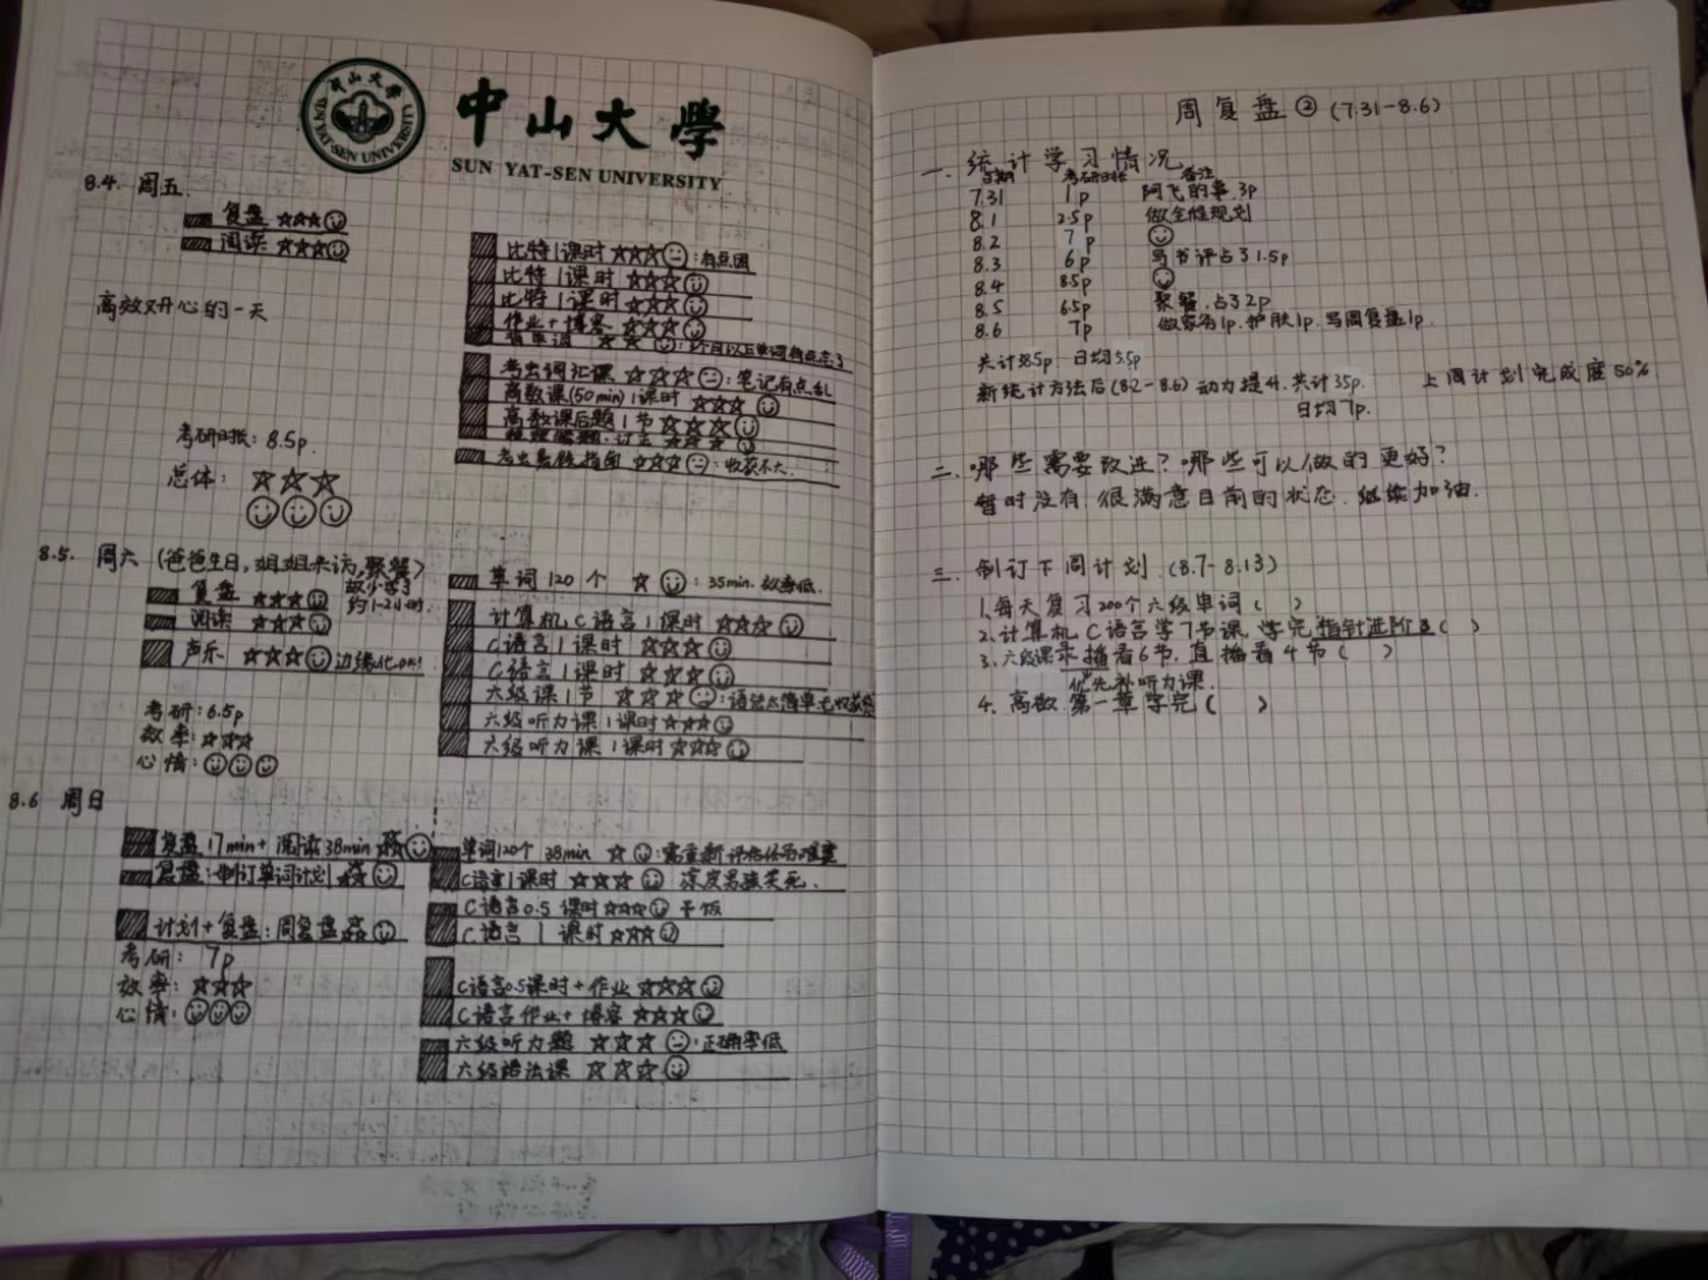 中山大學
SUN YAT-SEN UNIVERSITY
8.4. 周五.
复盘
阅读
高效又开心的一天
考研时长: 8.5p.
总体:
比特1课时 : 有点困
比特1课时
比特1课时
作业+博客
背单词
考虫词汇课 : 笔记有点乱
高数课(50min)1课时
高数课后题1节
: 收获不大.
8.5. 周六 (爸爸生日,姐姐来访,聚餐)
故少学了
约1-2小时.
复盘
阅读
声乐 边缘化on!
考研: 6.5p
效率:
心情:
单词120个 : 35min. 效率低.
计算机C语言1课时
C语言1课时
C语言1课时
六级课1节 : 语法太简单无收获感
六级听力课1课时
六级听力课1课时
8.6 周日
复盘17min+阅读38min
复盘:制订单词计划
计划+复盘:周复盘
考研: 7p
效率:
心情:
单词120个 38min : 需重新评估任务难度
C语言1课时 深度男孩笑死.
C语言0.5课时 干饭
C语言1课时
C语言0.5课时+作业
C语言作业+博客
六级听力题 : 正确率低
六级语法课
周复盘② (7.31-8.6)
一. 统计学习情况
日期 考研时长 备注
7.31 1p 阿飞的事.3p
8.1 2.5p 做全程规划
8.2 7p
8.3 6p 写书评占了1.5p
8.4 8.5p
8.5 6.5p 聚餐.占了2p
8.6 7p 做家务1p.护肤1p.写周复盘1p.
共计38.5p 日均5.5p
新统计方法后(8.2-8.6)动力提升.共计35p. 上周计划完成度50%
日均7p.
二. 哪些需要改进?哪些可以做的更好?
暂时没有.很满意目前的状态.继续加油.
三. 制订下周计划.(8.7-8.13)
1.每天复习200个六级单词( )
2.计算机C语言学7节课.学完指针进阶③( )
3.六级课录播看6节.直播看4节( )
优先补听力课.
4.高数第一章学完( )